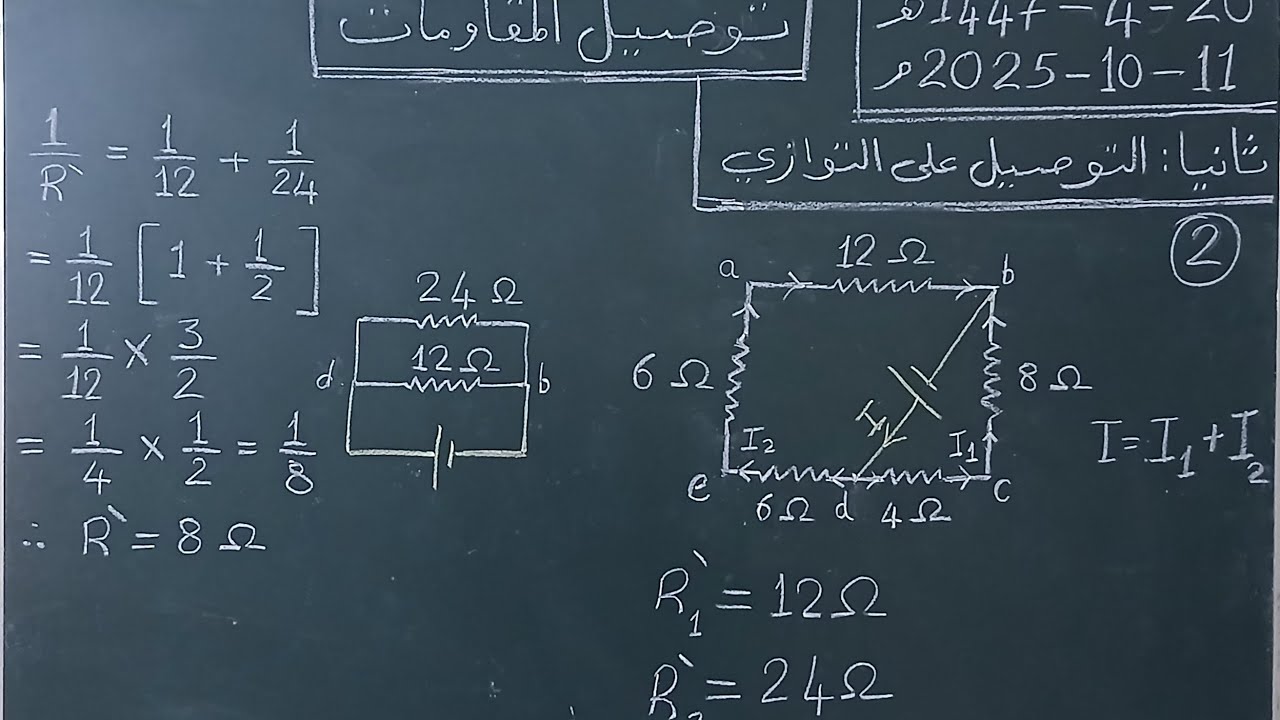 توصيل المقاومات
20-4-1447هـ
11-10-2025م
ثانيا: التوصيل على التوازي
2
1/R` = 1/12 + 1/24
= 1/12 [1 + 1/2]
= 1/12 × 3/2
= 1/4 × 1/2 = 1/8
∴ R` = 8 Ω
24 Ω
12 Ω
d
b
12 Ω
a
b
6 Ω
8 Ω
I
I₂
I₁
e
6 Ω
d
4 Ω
c
I = I₁ + I₂
R`₁ = 12 Ω
R`₂ = 24 Ω